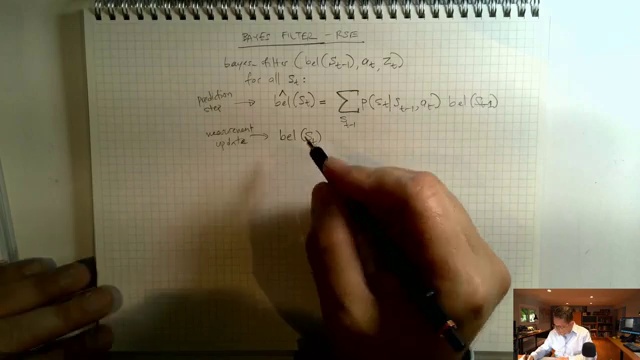 BAYES FILTER - RSE
bayes_filter (bel(St-1), at, Zt)
for all St:
prediction step → bel̂(St) = ∑St-1 p(St|St-1, at) bel(St-1)
measurement update → bel(St)